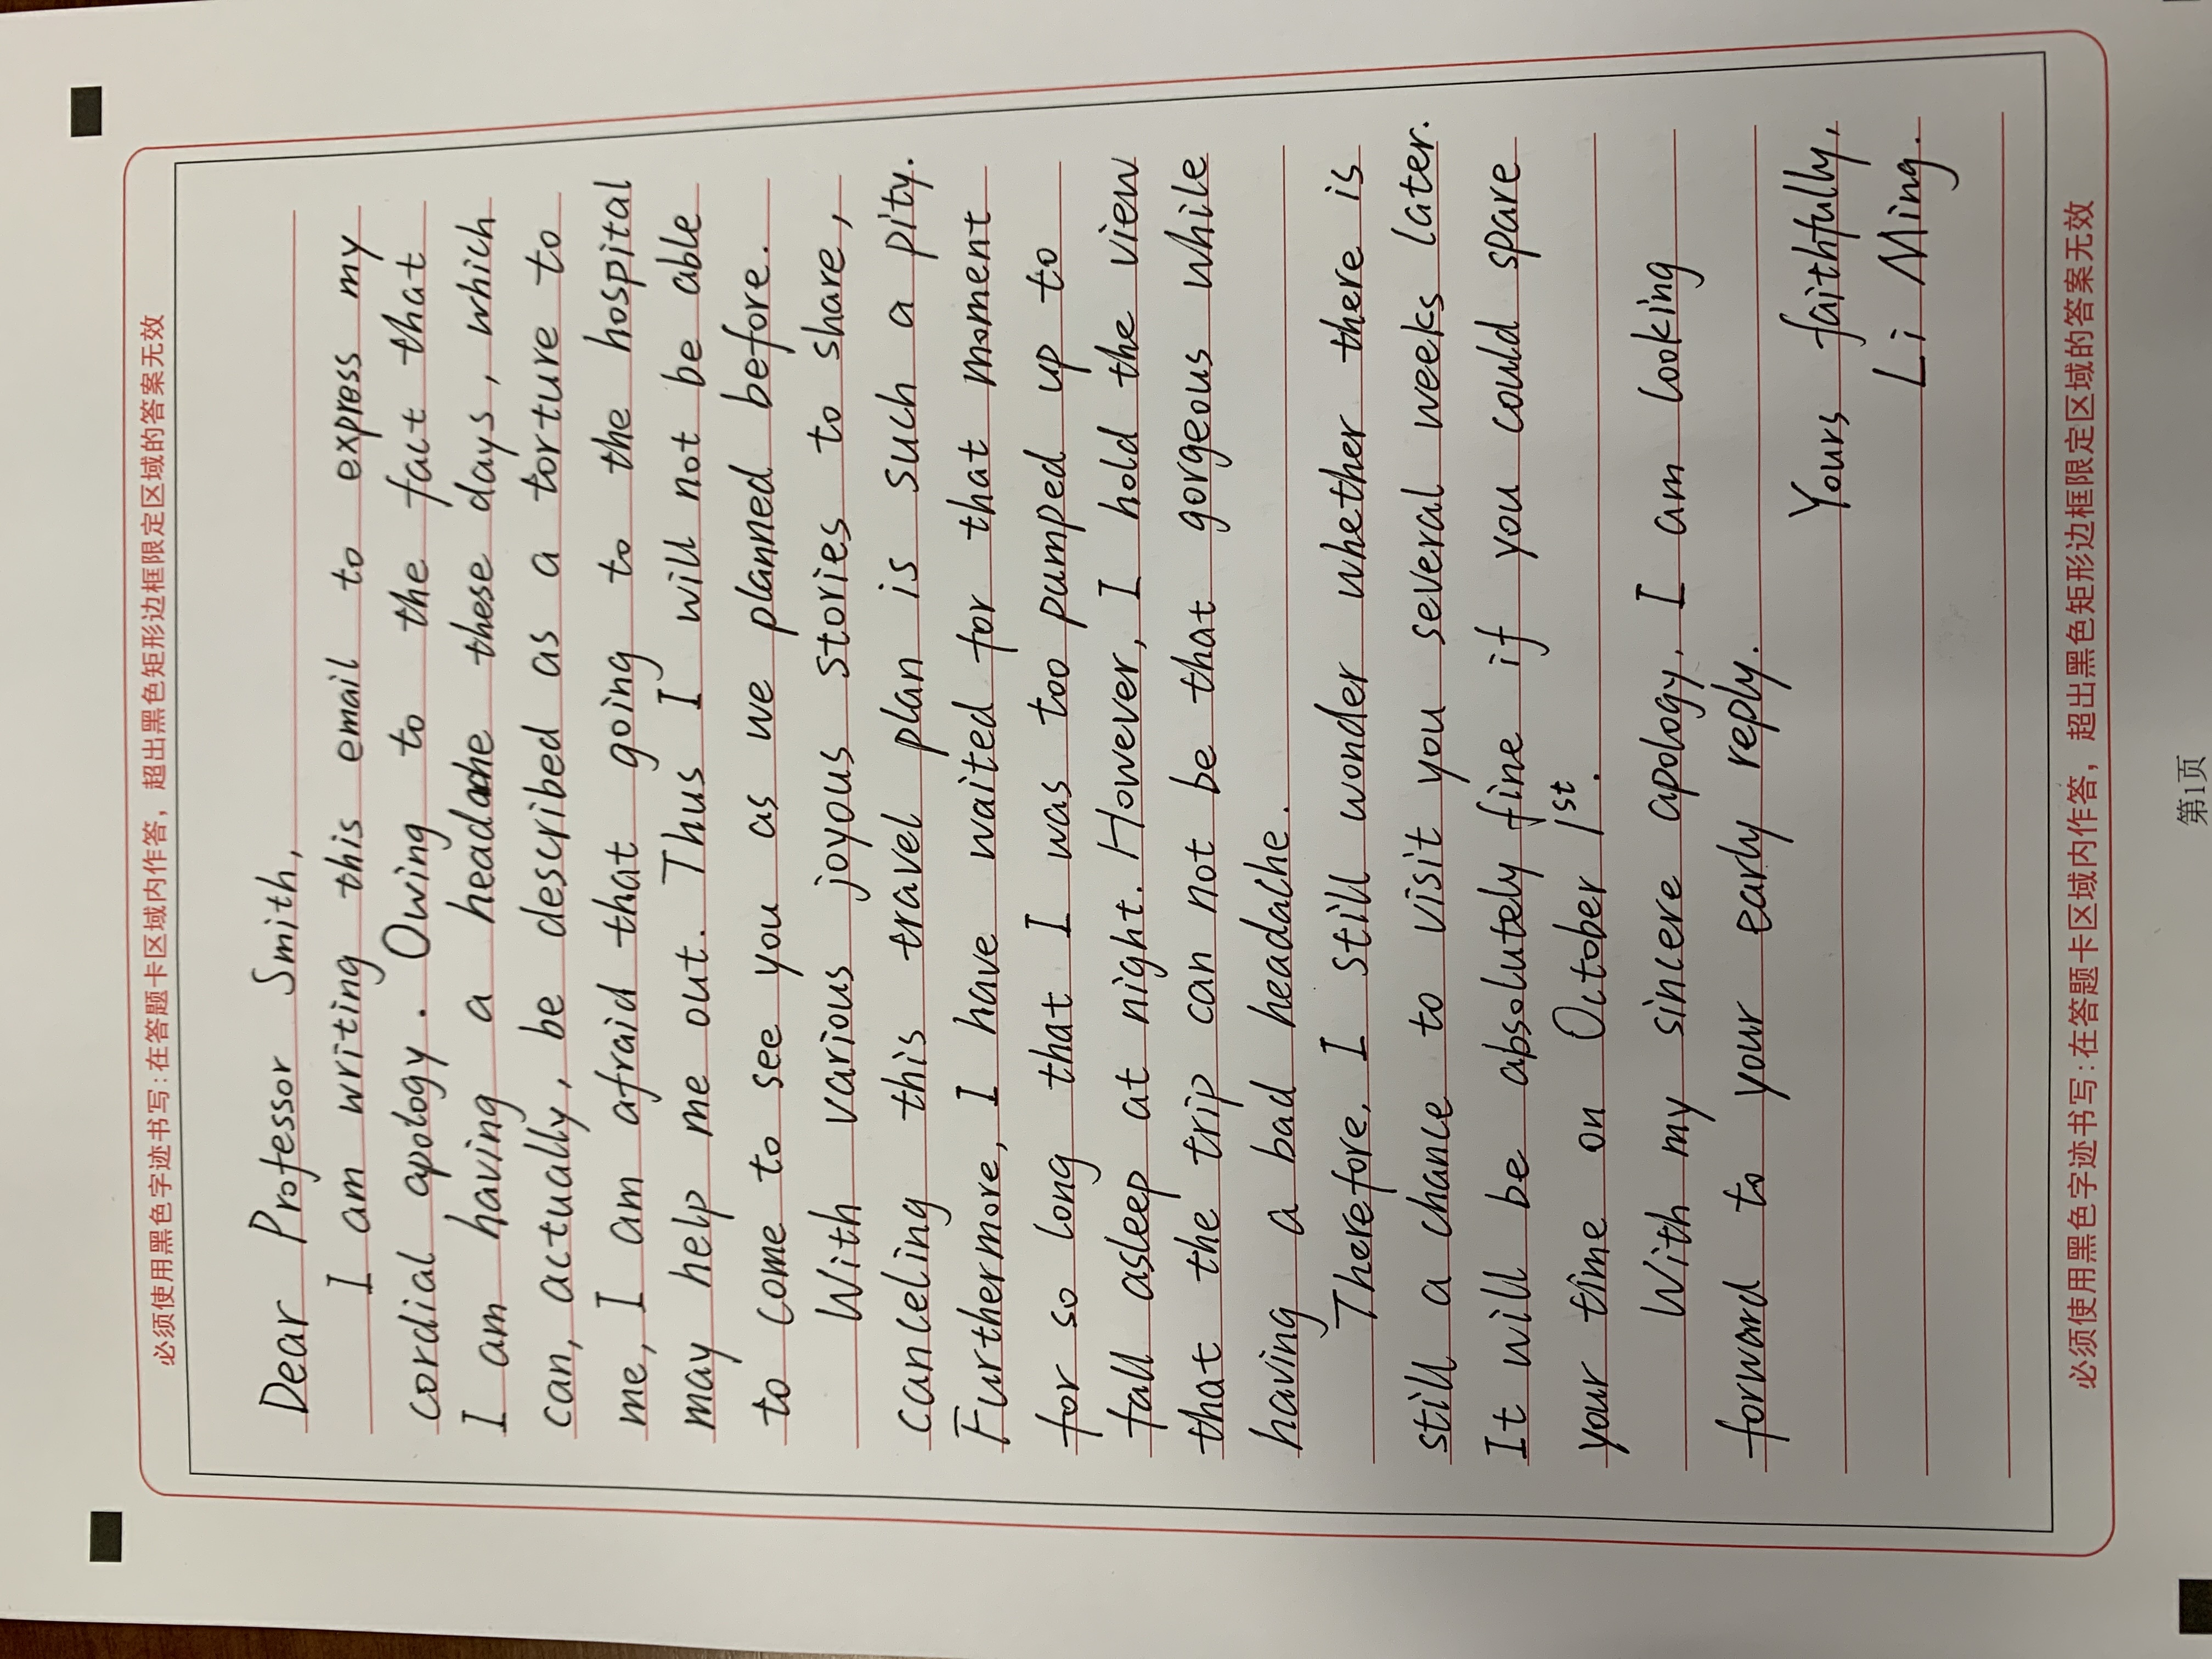 必须使用黑色字迹书写:在答题卡区域内作答，超出黑色矩形边框限定区域的答案无效
Dear Professor Smith,
I am writing this email to express my
cordial apology. Owing to the fact that
I am having a headache these days, which
can, actually, be described as a torture to
me, I am afraid that going to the hospital
may help me out. Thus I will not be able
to come to see you as we planned before.
With various joyous stories to share,
canceling this travel plan is such a pity.
Furthermore, I have waited for that moment
for so long that I was too pumped up to
fall asleep at night. However, I hold the view
that the trip can not be that gorgeous while
having a bad headache.
Therefore, I still wonder whether there is
still a chance to visit you several weeks later.
It will be absolutely fine if you could spare
your time on October 1st.
With my sincere apology, I am looking
forward to your early reply.
Yours faithfully,
Li Ming.
必须使用黑色字迹书写:在答题卡区域内作答，超出黑色矩形边框限定区域的答案无效
第1页